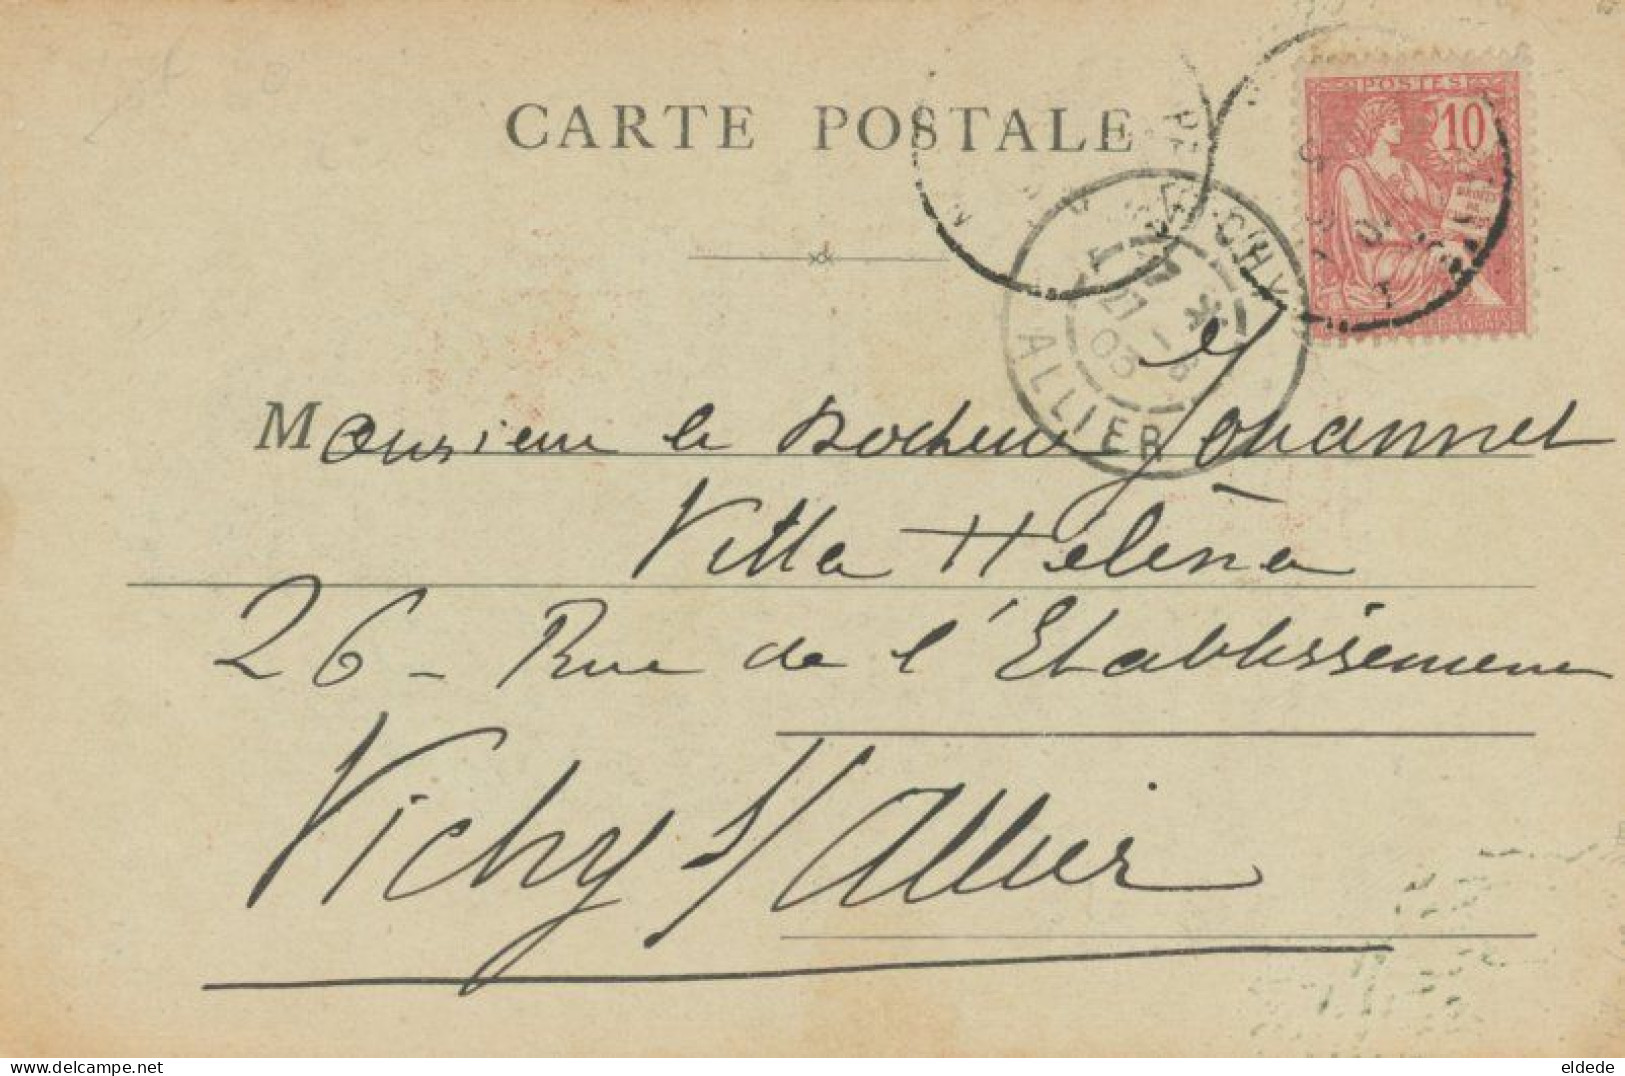 CARTE POSTALE
POSTES
10
VICHY
ALLIER
21
03
Monsieur le Docteur Jouannet
Villa Hélèna
26 - Rue de l'Etablissement
Vichy s/ Allier
eldede www.delcampe.net